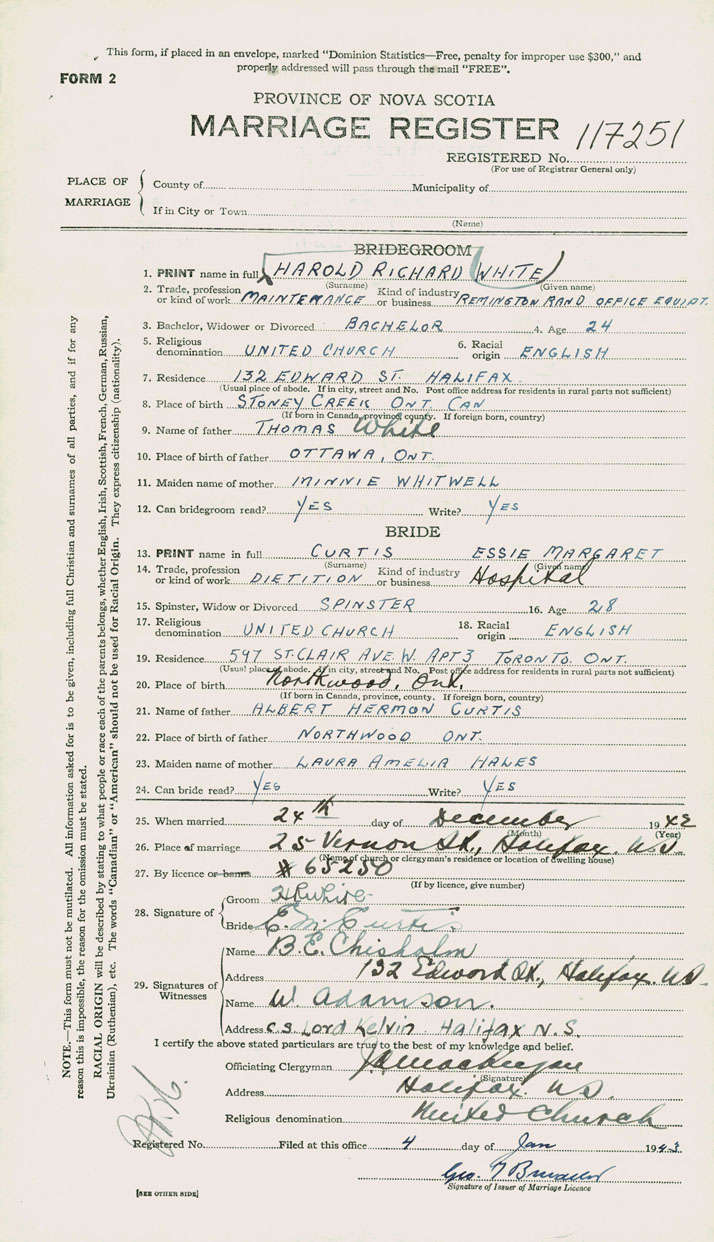 This form, if placed in an envelope, marked "Dominion Statistics—Free, penalty for improper use $300," and
properly addressed will pass through the mail "FREE".
FORM 2
PROVINCE OF NOVA SCOTIA
MARRIAGE REGISTER 117251
REGISTERED No.
(For use of Registrar General only)
PLACE OF MARRIAGE
County of Municipality of
If in City or Town
(Name)
BRIDEGROOM
1. PRINT name in full HAROLD RICHARD (WHITE)
(Surname) (Given name)
2. Trade, profession or kind of work MAINTENANCE Kind of industry or business REMINGTON RAND OFFICE EQUIPT.
3. Bachelor, Widower or Divorced BACHELOR 4. Age 24
5. Religious denomination UNITED CHURCH 6. Racial origin ENGLISH
7. Residence 132 EDWARD ST. HALIFAX.
(Usual place of abode. If in city, street and No. Post office address for residents in rural parts not sufficient)
8. Place of birth STONEY CREEK ONT. CAN
(If born in Canada, province, county. If foreign born, country)
9. Name of father THOMAS White
10. Place of birth of father OTTAWA, ONT.
11. Maiden name of mother MINNIE WHITWELL
12. Can bridegroom read? YES Write? YES
BRIDE
13. PRINT name in full CURTIS ESSIE MARGARET
(Surname) (Given name)
14. Trade, profession or kind of work DIETITION Kind of industry or business Hospital
15. Spinster, Widow or Divorced SPINSTER 16. Age 28
17. Religious denomination UNITED CHURCH 18. Racial origin ENGLISH
19. Residence 597 ST. CLAIR AVE. W. APT 3 TORONTO. ONT.
(Usual place of abode. If in city, street and No. Post office address for residents in rural parts not sufficient)
20. Place of birth Northwood, Ont.
(If born in Canada, province, county. If foreign born, country)
21. Name of father ALBERT HERMON CURTIS
22. Place of birth of father NORTHWOOD ONT.
23. Maiden name of mother LAURA AMELIA HALES
24. Can bride read? YES Write? YES
25. When married 24th day of December 1942
(Month) (Year)
26. Place of marriage 25 Vernon St., Halifax. N.S.
(Name of church or clergyman's residence or location of dwelling house)
27. By licence or banns # 65250
(If by licence, give number)
28. Signature of
Groom HRWhite
Bride E. M. Curtis
29. Signatures of Witnesses
Name B.E. Chisholm
Address 132 Edward St., Halifax. N.S.
Name W. Adamson.
Address C.S. Lord Kelvin Halifax N.S.
I certify the above stated particulars are true to the best of my knowledge and belief.
Officiating Clergyman
(Signature)
Address Halifax. N.S.
Religious denomination United Church
Registered No. Filed at this office 4 day of Jan 1943
Geo.
Signature of Issuer of Marriage Licence
[SEE OTHER SIDE]
NOTE.—This form must not be mutilated. All information asked for is to be given, including full Christian and surnames of all parties, and if for any
reason this is impossible, the reason for the omission must be stated.
RACIAL ORIGIN will be described by stating to what people or race each of the parents belongs, whether English, Irish, Scottish, French, German, Russian,
Ukrainian (Ruthenian), etc. The words "Canadian" or "American" should not be used for Racial Origin. They express citizenship (nationality).